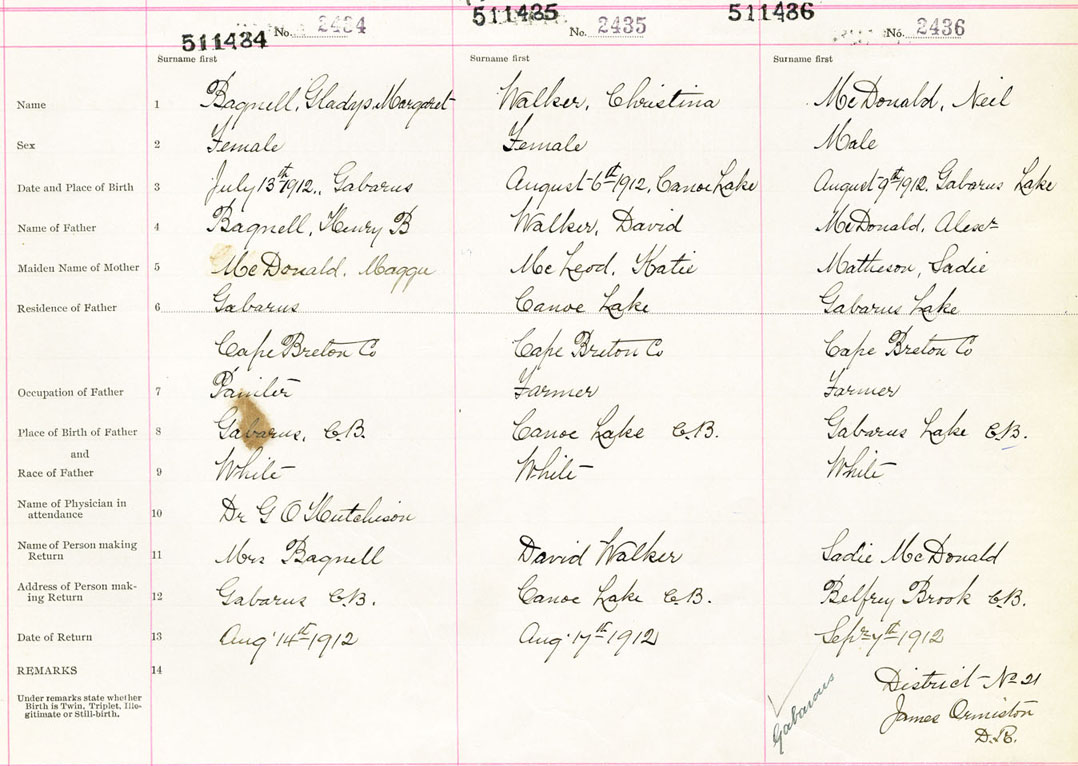 511484 No. 2434 511485 No. 2435 511486 No. 2436
Surname first Surname first Surname first
Name 1 Bagnell, Gladys Margaret Walker, Christina McDonald, Neil
Sex 2 Female Female Male
Date and Place of Birth 3 July 13th 1912, Gabarus August 6th 1912, Canoe Lake August 9th 1912, Gabarus Lake
Name of Father 4 Bagnell, Henry B Walker, David McDonald, Alexr
Maiden Name of Mother 5 McDonald, Maggie McLeod, Katie Matheson, Sadie
Residence of Father 6 Gabarus Canoe Lake Gabarus Lake
Cape Breton Co Cape Breton Co Cape Breton Co
Occupation of Father 7 Painter Farmer Farmer
Place of Birth of Father 8 Gabarus, C.B. Canoe Lake C.B. Gabarus Lake C.B.
and
Race of Father 9 White White White
Name of Physician in
attendance 10 Dr G O Hutchison
Name of Person making
Return 11 Mrs Bagnell David Walker Sadie McDonald
Address of Person mak-
ing Return 12 Gabarus C.B. Canoe Lake C.B. Belfrey Brook C.B.
Date of Return 13 Aug 14th 1912 Aug 17th 1912 Sepr 7th 1912
REMARKS 14
Under remarks state whether
Birth is Twin, Triplet, Ille-
gitimate or Still-birth.
District No 21
James Ormiston
D.R.
Gabarous